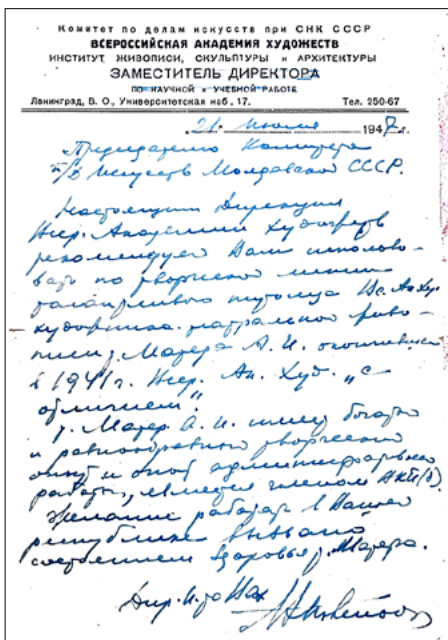 Комитет по делам искусств при СНК СССР
ВСЕРОССИЙСКАЯ АКАДЕМИЯ ХУДОЖЕСТВ
ИНСТИТУТ ЖИВОПИСИ, СКУЛЬПТУРЫ и АРХИТЕКТУРЫ
ЗАМЕСТИТЕЛЬ ДИРЕКТОРА
ПО НАУЧНОЙ и УЧЕБНОЙ РАБОТЕ
Ленинград, В. О., Университетская наб., 17. Тел. 250-67
21 июля 1947 г.
Председателю Комитета
п/д Искусств Молдавской СССР.
Настоящим Дирекция
Всер. Академии Художеств
рекомендует Вам использо-
вать по творческой линии
талантливого питомца Вс. Ак. Худ.
художника театральной живо-
писи т. Матера А. И. окончившего
в 1941 г. Всер. Ак. Худ. „с
отличием".
т. Матер А. И. имеет богатый
и разносторонний творческий
опыт и опыт административной
работы, является членом ВКП(б).
Желание работать в Вашей
республике вызвано
состоянием здоровья т. Матера.
Дир. И-та Вах